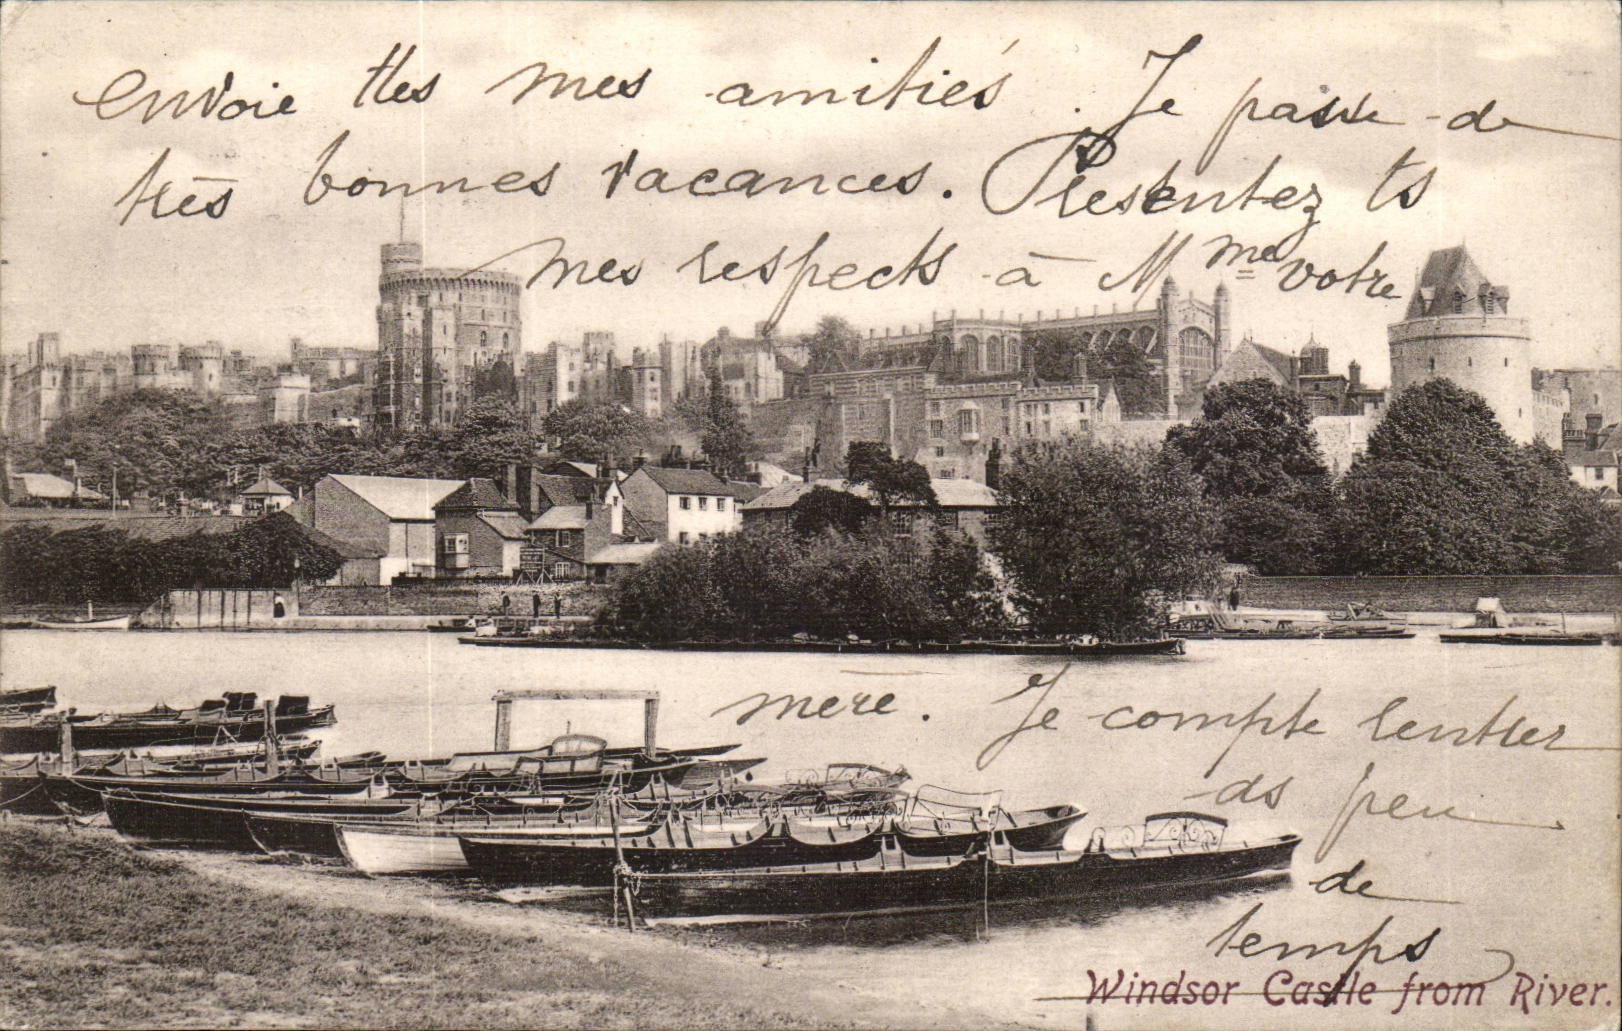 envoie ttes mes amitiés. Je passe de
très bonnes vacances. Présentez ts
mes respects à Mme votre
mère. Je compte rentrer
ds peu
de
temps
Windsor Castle from River.